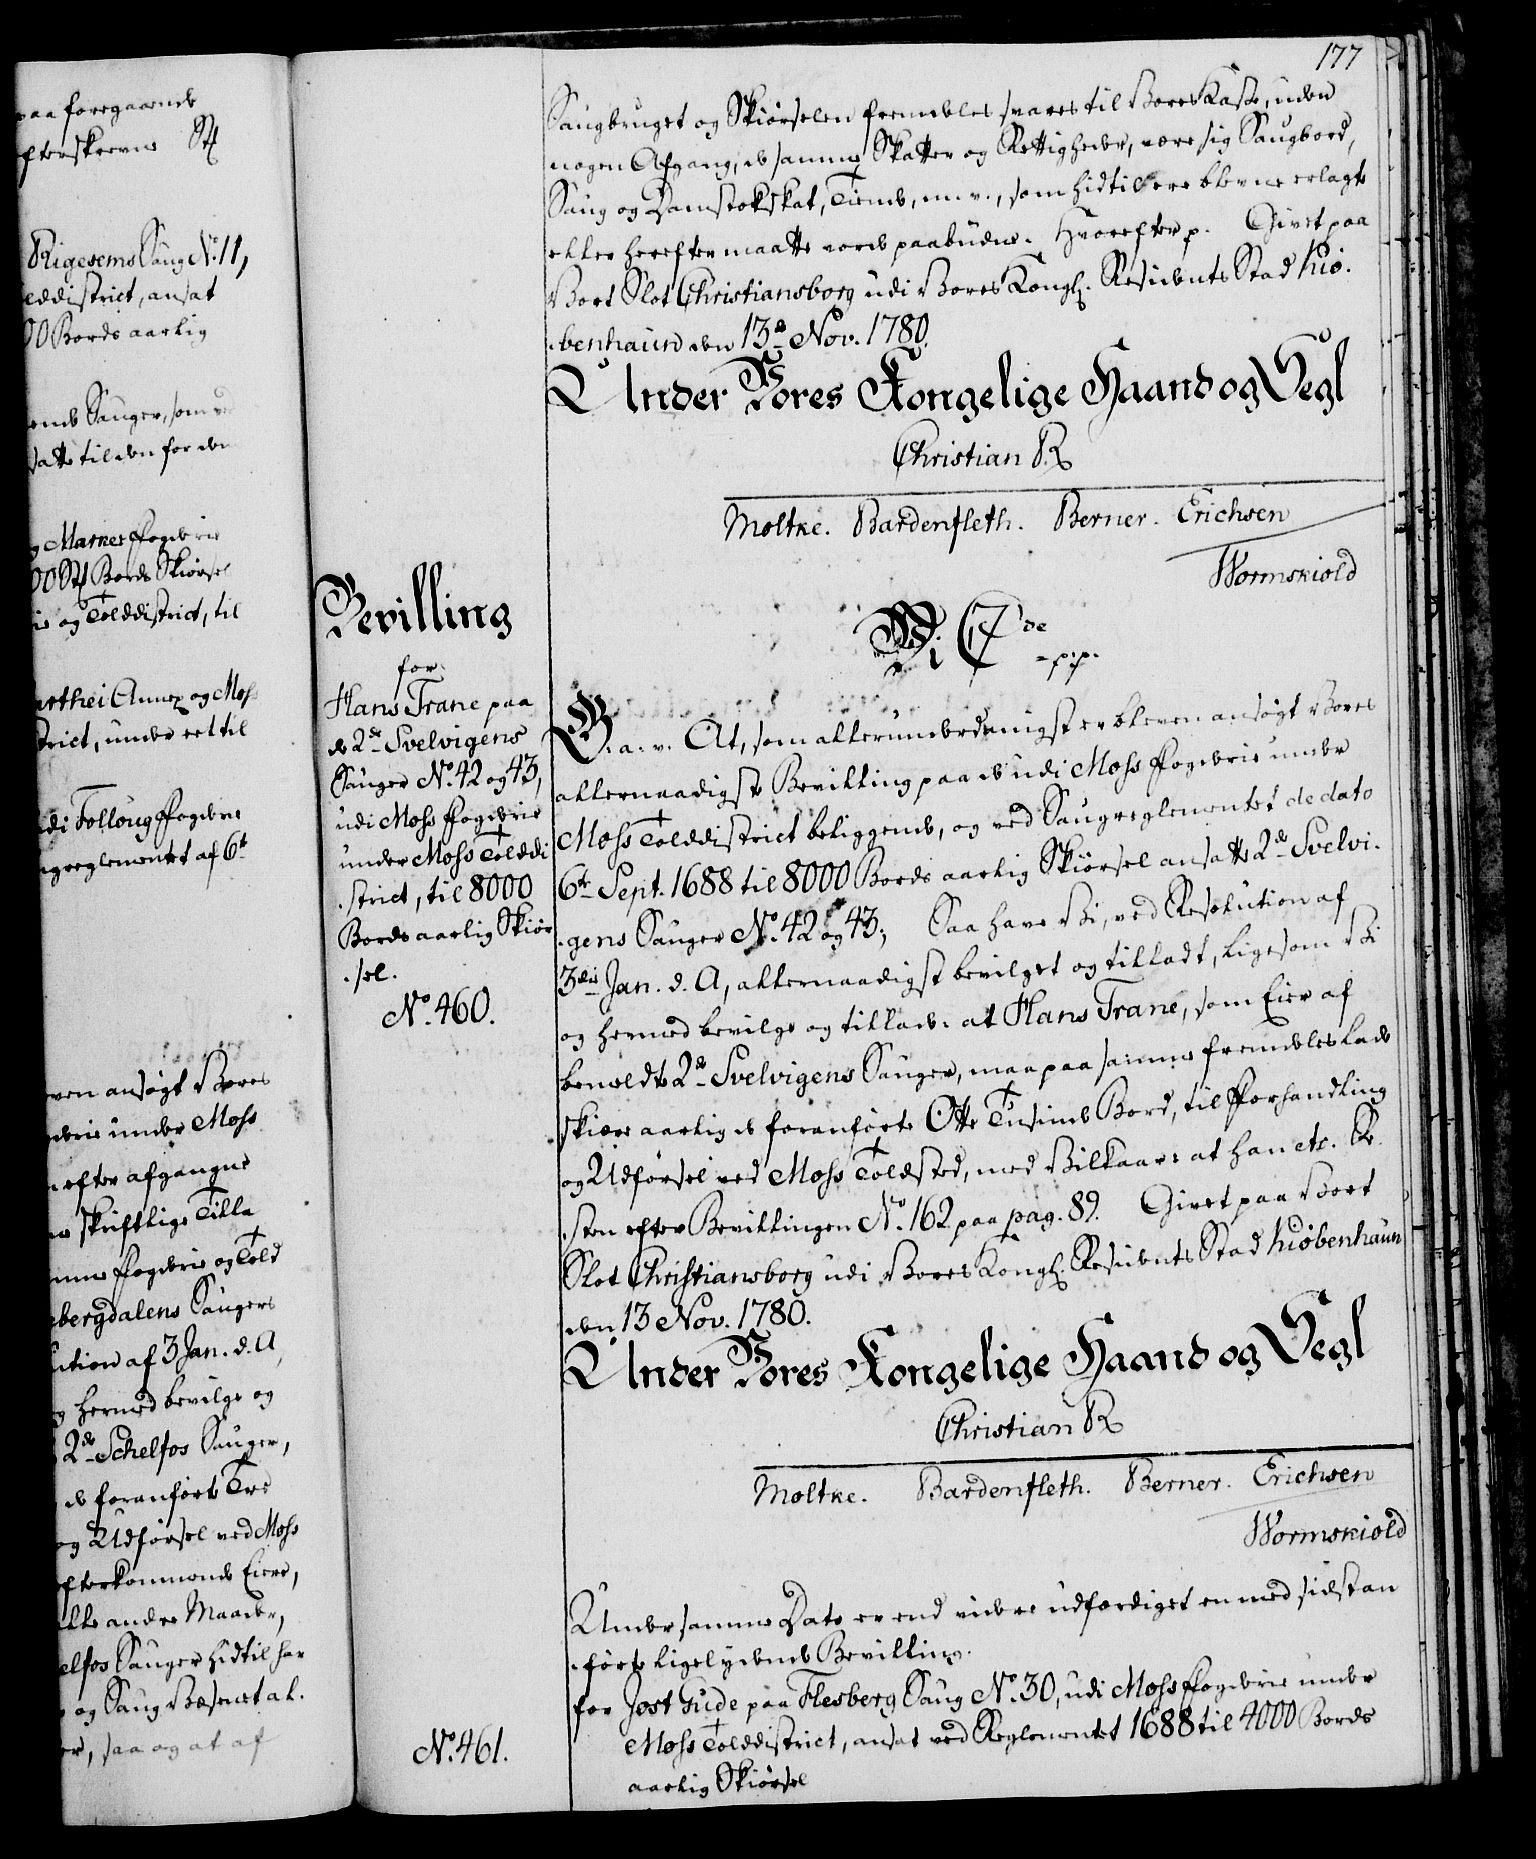 paa foregaaende
Efterskrevne St
Rigesems Saug No. 11,
olddistrict, ansat
00 Bords aarlig
ende Sauger, som ved
satte til den for den
og Marker Fogderie
00 St Bords Skiørsel
ie og Tolddistrict, til
arthei Annex og Moss
strict, under eet til
udi Folloug Fogderie
ugreglementet af 6te
even ansøgt Vores
gderie under Moss
efter afgangne
skriftlige Tilla
Fogderie og Told
ebergdalens Saugers
ution af 3 Jan. d. A,
og hermed bevilge og
2de Schelfos Sauger,
de foranførte Tre
og Udførsel ved Moss
efterkommende Eiere,
alle andre Maader,
elfos Sauger hidtil har
og Saug Væsenet al.
er, saa og at af
177
Saugbruget og Skiørselen fremdeles svares til Vores Kasse, uden
nogen Afgang, de samme Skatter og Rettigheder, være sig Saugbord,
Saug og Damstokskat, Tiende, m. v., som hidtil ere blevne erlagte
eller herefter maatte vorde paabudne. Hvorefter p. Givet paa
Vort Slot Christiansborg udi Vores Kongl. Residents Stad Kiø.
.benhaun den 13de Nov. 1780.
Under Vores Kongelige Haand og Segl
Christian R
Moltke. Bardenfleth. Berner. Erichsen
Wormskiold
Bevilling
for
Hans Trane paa
de 2de Svelvigens
Sauger No. 42 og 43,
udi Moss Fogderie
under Moss Tolddi
.strict, til 8000
Bords aarlig Skiør
.sel.
No. 460.
Vi C 7de
- p. p.
G. a. v. At, som allerunderdanigst er bleven ansøgt Vores
allernaadigste Bevilling paa de udi Moss Fogderie under
Moss Tolddistrict beliggende, og ved Saugreglementet de dato
6te Sept. 1688 til 8000 Bords aarlig Skiørsel ansatte 2de Svelvi.
.gens Sauger No. 42 og 43; Saa have Vi, ved Resolution af
3die Jan. d. A, allernaadigst bevilget og tilladt, ligesom Vi
og hermed bevilge og tillade: at Hans Trane, som Eier af
bemeldte 2de Svelvigens Sauger, maa paa samme fremdeles lade
skiære aarlig de foranførte Otte Tusinde Bord, til Forhandling
og Udførsel ved Moss Toldsted, med Vilkaar: at han etc. Re
.sten efter Bevillingen No. 162 paa pag. 89. Givet paa Vort
Slot Christiansborg udi Vores Kongl. Residents Stad Kiøbenhaun
den 13 Nov. 1780.
Under Vores Kongelige Haand og Segl
Christian R
Moltke. Bardenfleth. Berner. Erichsen
Wormskiold
Under samme Dato er end videre udfærdiget en med sidstan
.førte ligelydende Bevilling.
No. 461.
for Jost Gude paa Flesberg Saug No. 30, udi Moss Fogderie under
Moss Tolddistrict, ansat ved Reglementet 1688 til 4000 Bords
aarlig Skiørsel